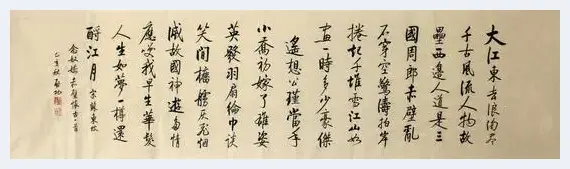 大江東去浪淘盡
千古風流人物故
壘西邊人道是三
國周郎赤壁亂
石穿空驚濤拍岸
捲起千堆雪江山如
畫一時多少豪傑
遙想公瑾當年
小喬初嫁了雄姿
英發羽扇綸巾談
笑間檣艣灰飛烟
滅故國神遊多情
應笑我早生華髮
人生如夢一樽還
酹江月 宋蘇東坡
念奴嬌赤壁懷古一首